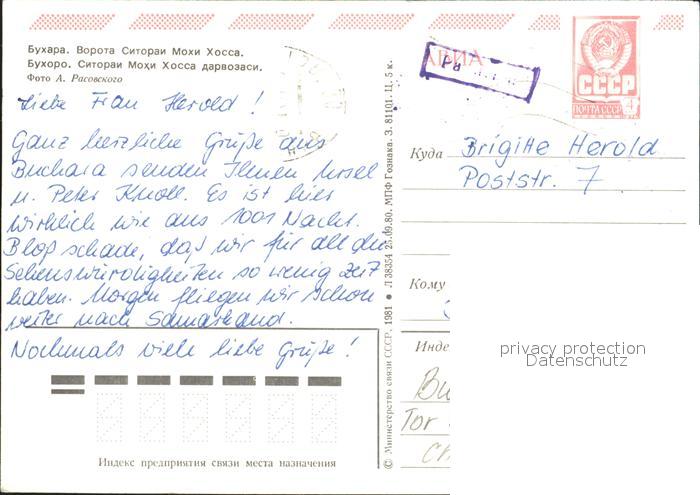 Бухара. Ворота Ситораи Мохи Хосса.
Бухоро. Ситораи Моҳи Хосса дарвозаси.
Фото А. Расовского
Liebe Frau Herold!
Ganz herzliche Grüße aus
Buchara senden Ihnen Ursel
u. Peter Knoll. Es ist hier
wirklich wie aus 1001 Nacht.
Bloß schade, daß wir für all die
Sehenswürdigkeiten so wenig Zeit
haben. Morgen fliegen wir schon
weiter nach Samarkand.
Nochmals viele liebe Grüße!
Индекс предприятия связи места назначения
© Министерство связи СССР, 1981 ● Л 38354 25.09.80. МПФ Гознака. З. 81101. Ц. 5 к.
АВИА
СССР
ПОЧТА СССР 4
Куда Brigitte Herold
Poststr. 7
Кому
Инде
privacy protection
Datenschutz
Bu
Tor